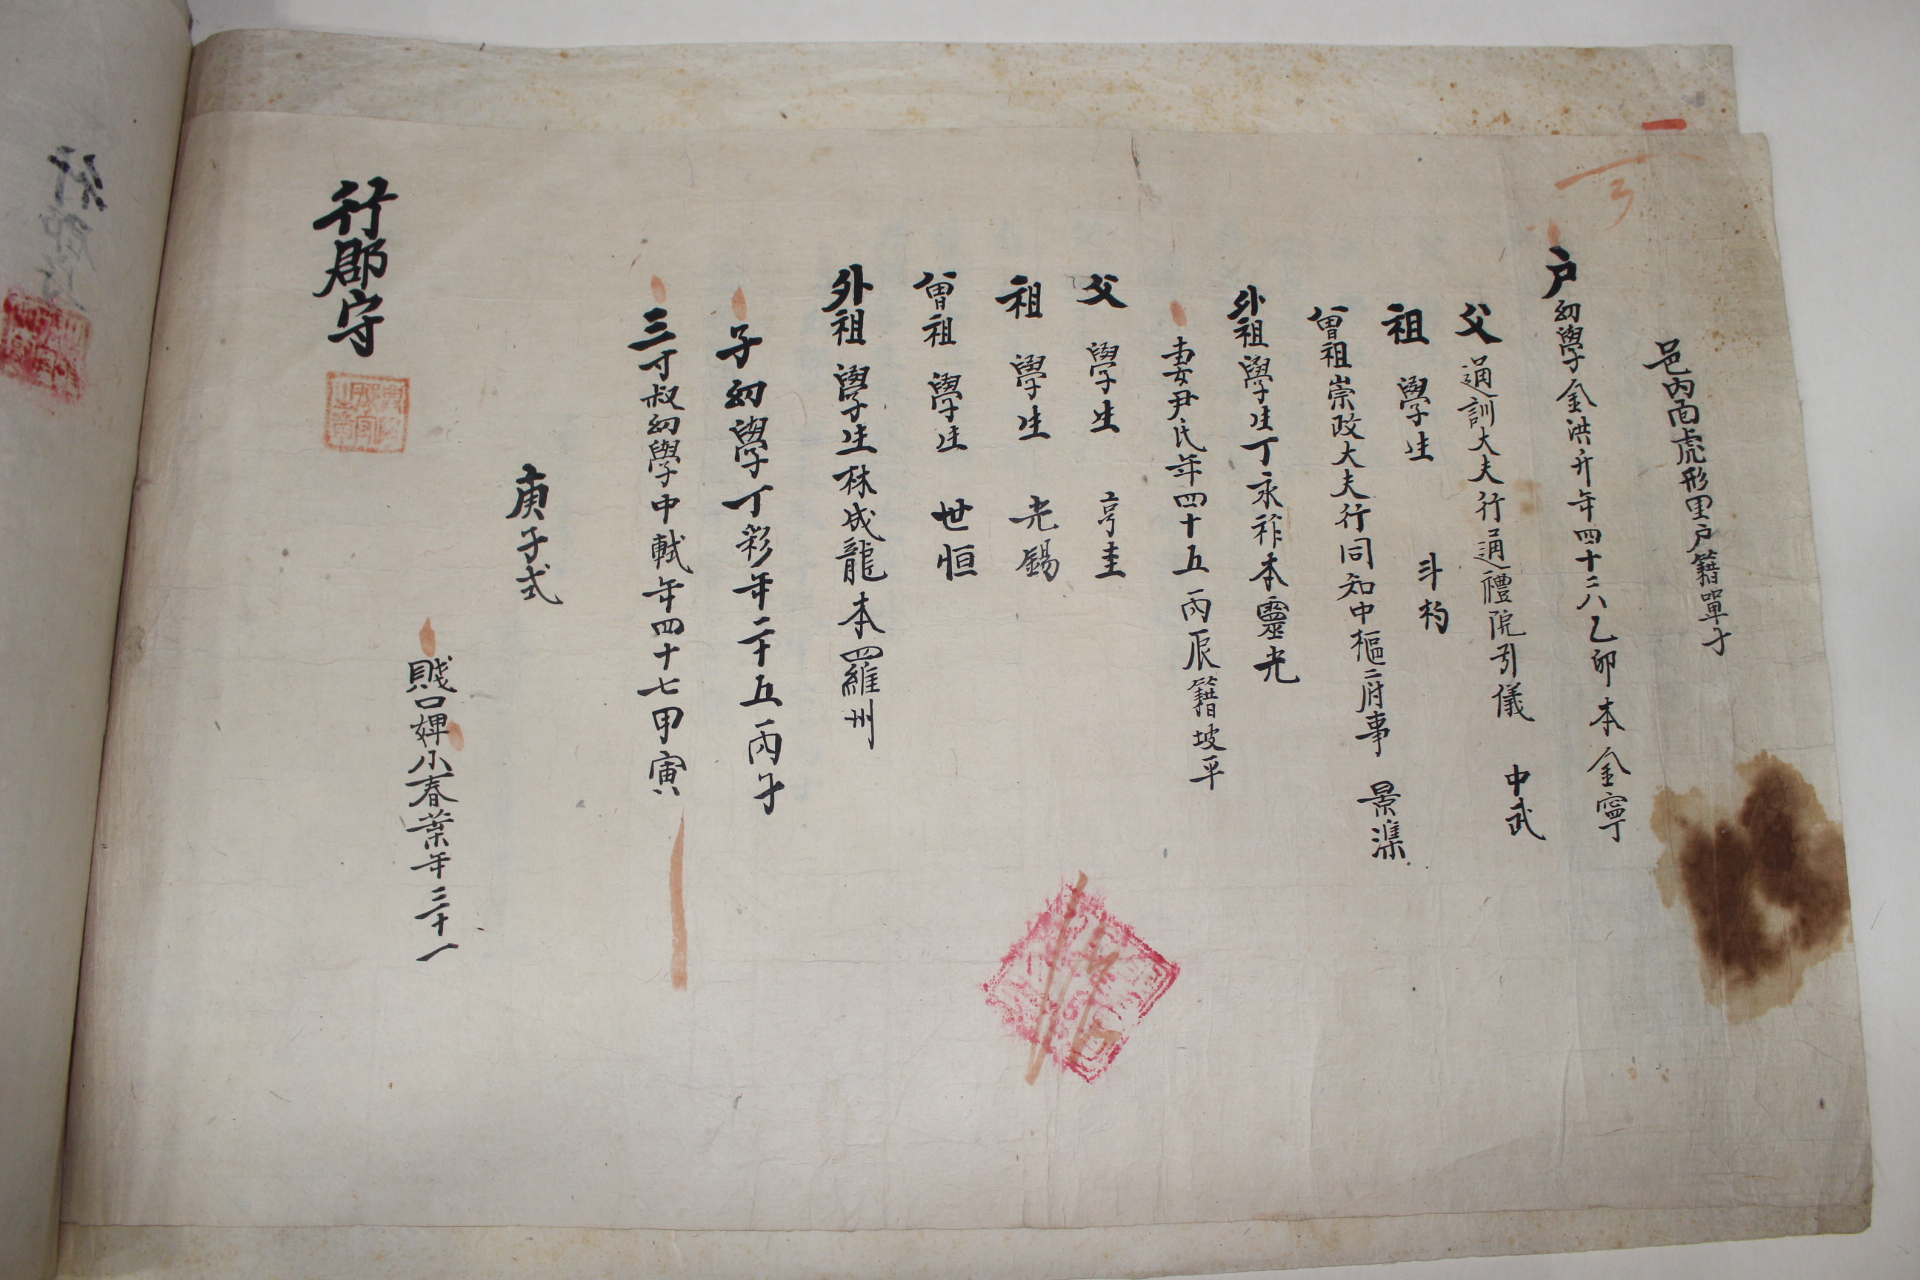 邑內面虎形里戶籍單子
戶幼學金洪升年四十六乙卯本金寧
父通訓大夫行通禮院引儀 中武
祖學生 斗杓
曾祖崇政大夫行同知中樞府事 景濈
外祖學生丁永祚本靈光
妻尹氏年四十五丙辰籍坡平
父學生 亨圭
祖學生 光錫
曾祖學生 世恒
外祖學生林成龍本羅州
子幼學丁彩年二十五丙子
三寸叔幼學中軾年四十七甲寅
庚子式
賤口婢小春葉年三十一
行郡守
行郡守